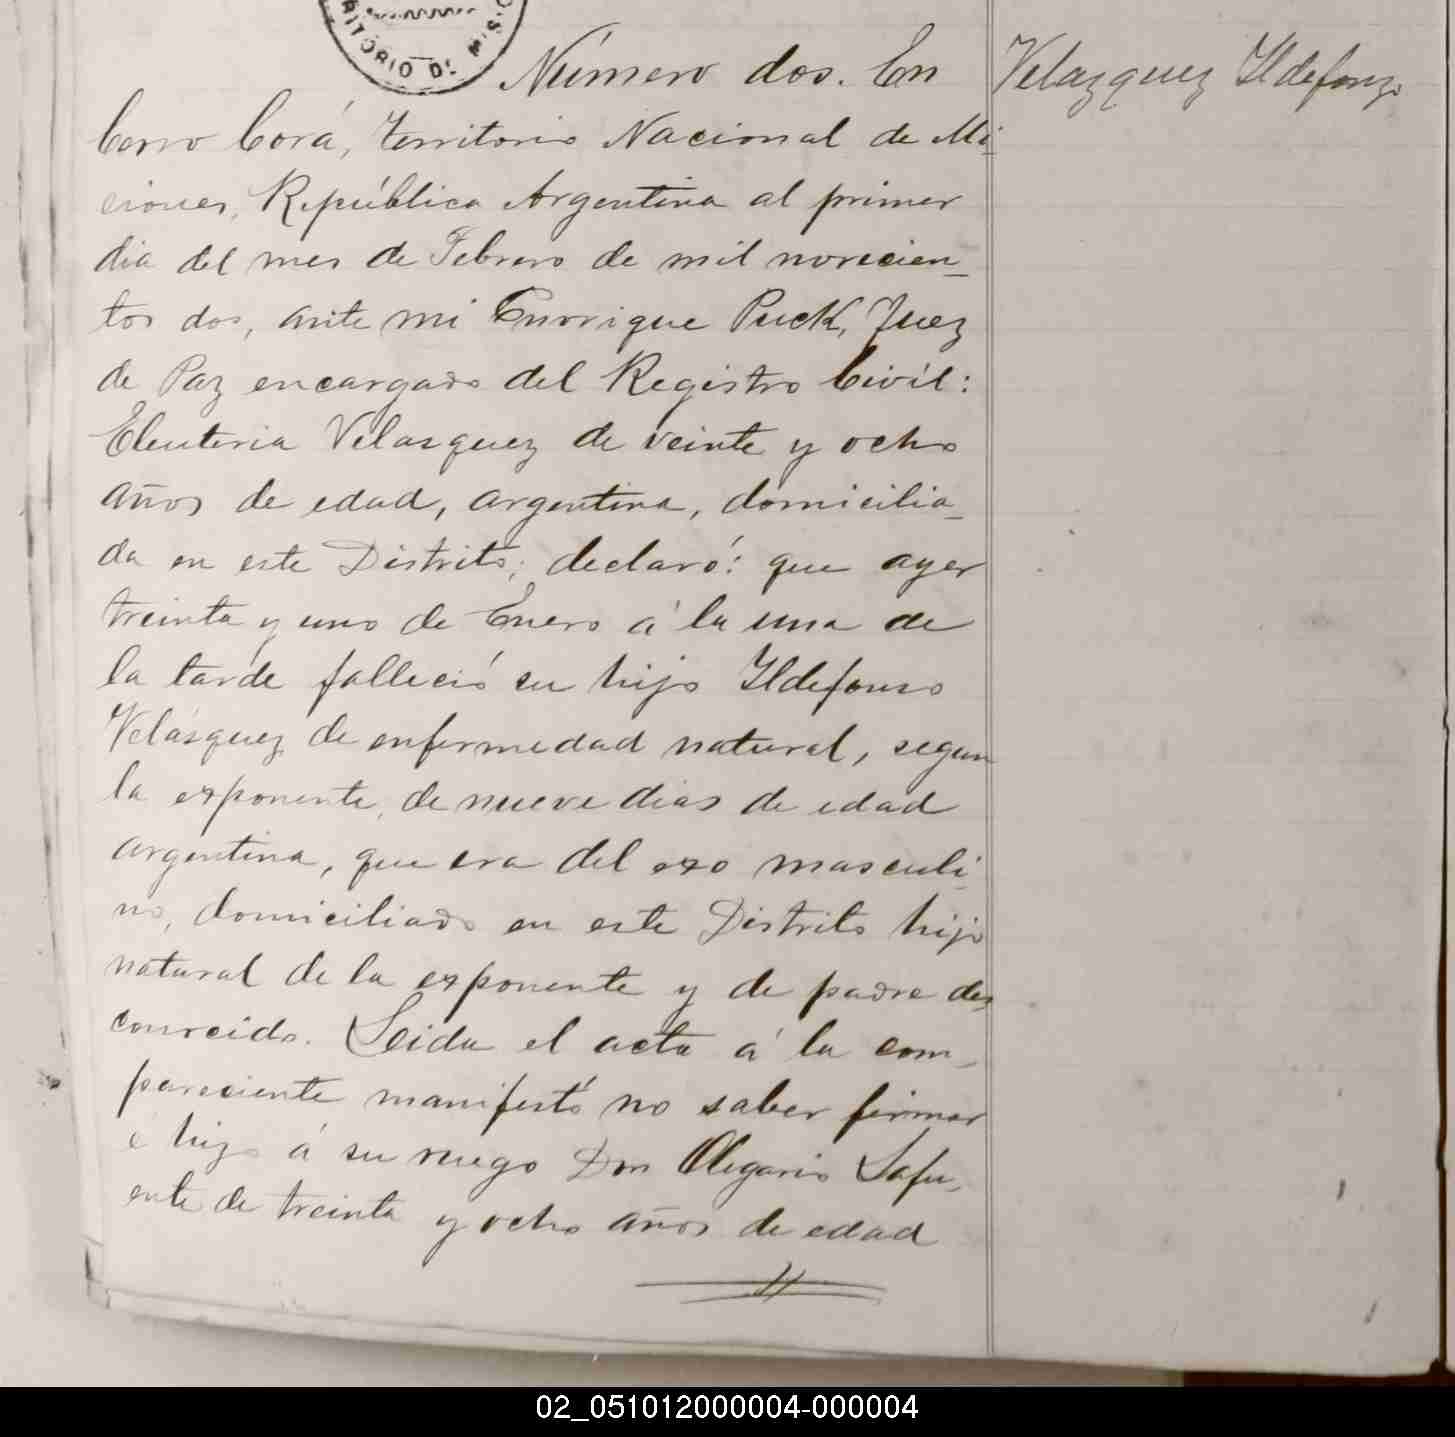 RITORIO D. MIS.
Número dos. En
Velazquez Ildefonzo
Cerro Corá, Territorio Nacional de Mi-
ciones, República Argentina al primer
dia del mes de Febrero de mil novecien-
tos dos, ante mi Enrrique Puck, Juez
de Paz encargado del Registro Civíl:
Eleuteria Velasquez de veinte y ocho
años de edad, argentina, domicilia-
da en este Distrito; declaró: que ayer
treinta y uno de Enero á la una de
la tarde falleció su hijo Ildefonso
Velásquez de enfermedad natural, segun
la exponente, de nueve dias de edad
argentina, que era del sexo masculi-
no, domiciliado en este Distrito hijo
natural de la exponente y de padre des
conocido. Leida el acta á la com-
pareciente manifestó no saber firmar
é hizo á su ruego Don Olegario Lafu-
ente de treinta y ocho años de edad
02_051012000004-000004